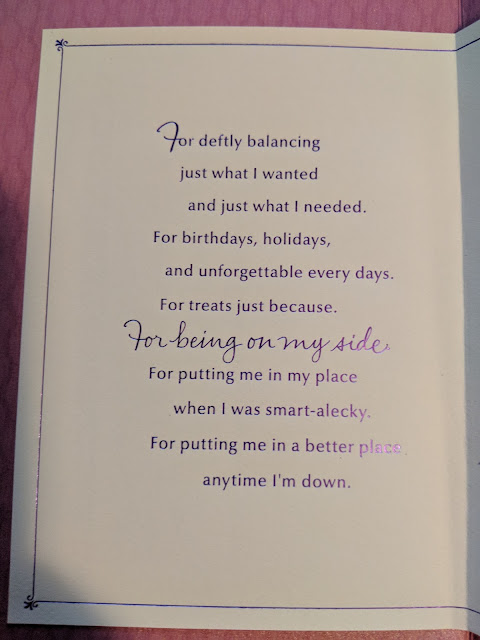 For deftly balancing
just what I wanted
and just what I needed.
For birthdays, holidays,
and unforgettable every days.
For treats just because.
For being on my side.
For putting me in my place
when I was smart-alecky.
For putting me in a better place
anytime I'm down.